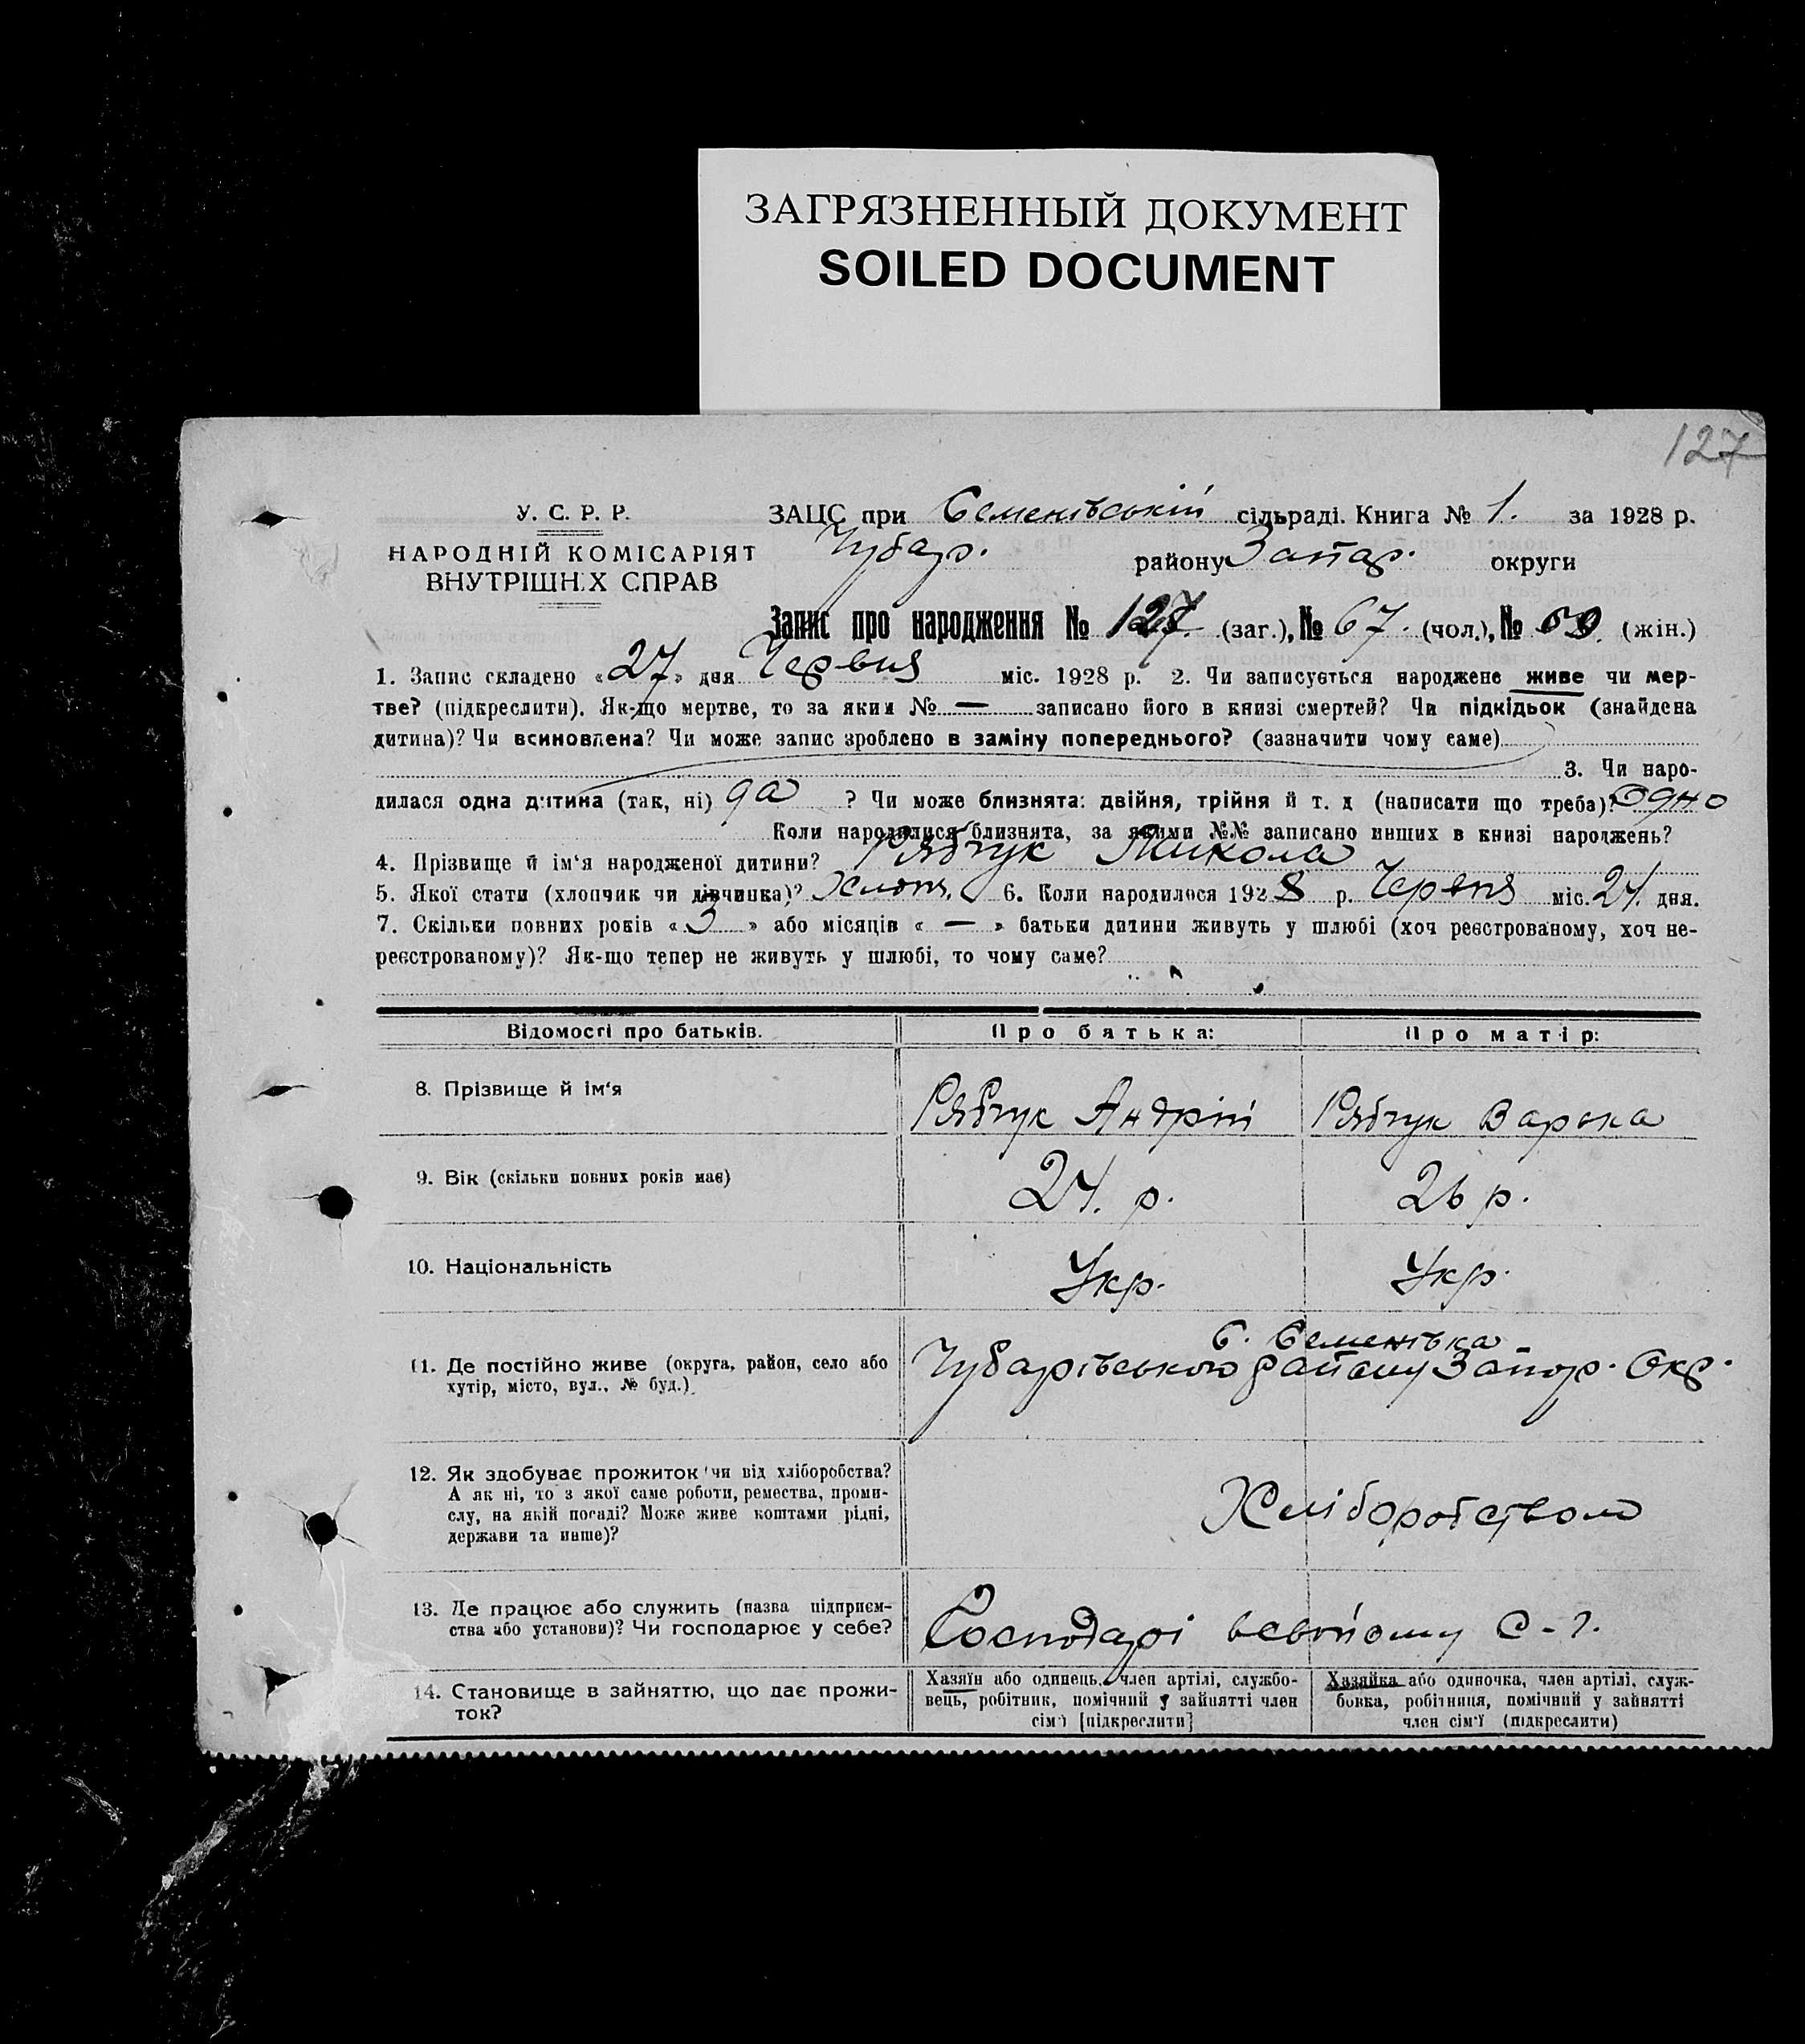 ЗАГРЯЗНЕННЫЙ ДОКУМЕНТ
SOILED DOCUMENT
127
У. С. Р. Р.
НАРОДНІЙ КОМІСАРІЯТ
ВНУТРІШНІХ СПРАВ
ЗАЦС при Семенівській сільраді. Книга № 1. за 1928 р.
Чубар. району Запор. округи
Запис про народження № 127. (заг.), № 67. (чол.), № (жін.)
1. Запис складено «27» дня Червня міс. 1928 р. 2. Чи записується народжене живе чи мер-
тве? (підкреслити). Як-що мертве, то за яким № — записано його в книзі смертей? Чи підкідьок (знайдена
дитина)? Чи всиновлена? Чи може запис зроблено в заміну попереднього? (зазначити чому саме)
3. Чи наро-
дилася одна дитина (так, ні) да ? Чи може близнята: двійня, трійня й т. д (написати що треба)? Одно
Коли народилися близнята, за якими №№ записано инших в книзі народжень?
4. Прізвище й ім'я народженої дитини? Рябчук Микола
5. Якої стати (хлопчик чи дівчинка)? Хлопч. 6. Коли народилося 1928 р. Червня міс. дня.
7. Скільки повних років «3» або місяців «—» батьки дитини живуть у шлюбі (хоч реєстрованому, хоч не-
реєстрованому)? Як-що тепер не живуть у шлюбі, то чому саме?
Відомості про батьків. Про батька: Про матір:
8. Прізвище й ім'я Рябчук Андрій Рябчук Варька
9. Вік (скільки повних років має) р. 26 р.
10. Національність Укр. Укр.
с. Семенівка
11. Де постійно живе (округа, район, село або Чубарівського району Запор. Окр.
хутір, місто, вул., № буд.)
12. Як здобуває прожиток чи від хліборобства?
А як ні, то з якої саме роботи, ремества, проми- Хліборобством
слу, на якій посаді? Може живе коштами рідні,
держави та инше)?
13. Де працює або служить (назва підприєм- Господарі всвойому С-г.
ства або установи)? Чи господарює у себе?
14. Становище в зайняттю, що дає прожи-
ток?
Хазяїн або одинець, член артілі, службо-
вець, робітник, помічний у зайнятті член
сім'ї [підкреслити]
Хазяйка або одиночка, член артілі, служ-
бовка, робітниця, помічний у зайнятті
член сім'ї (підкреслити)